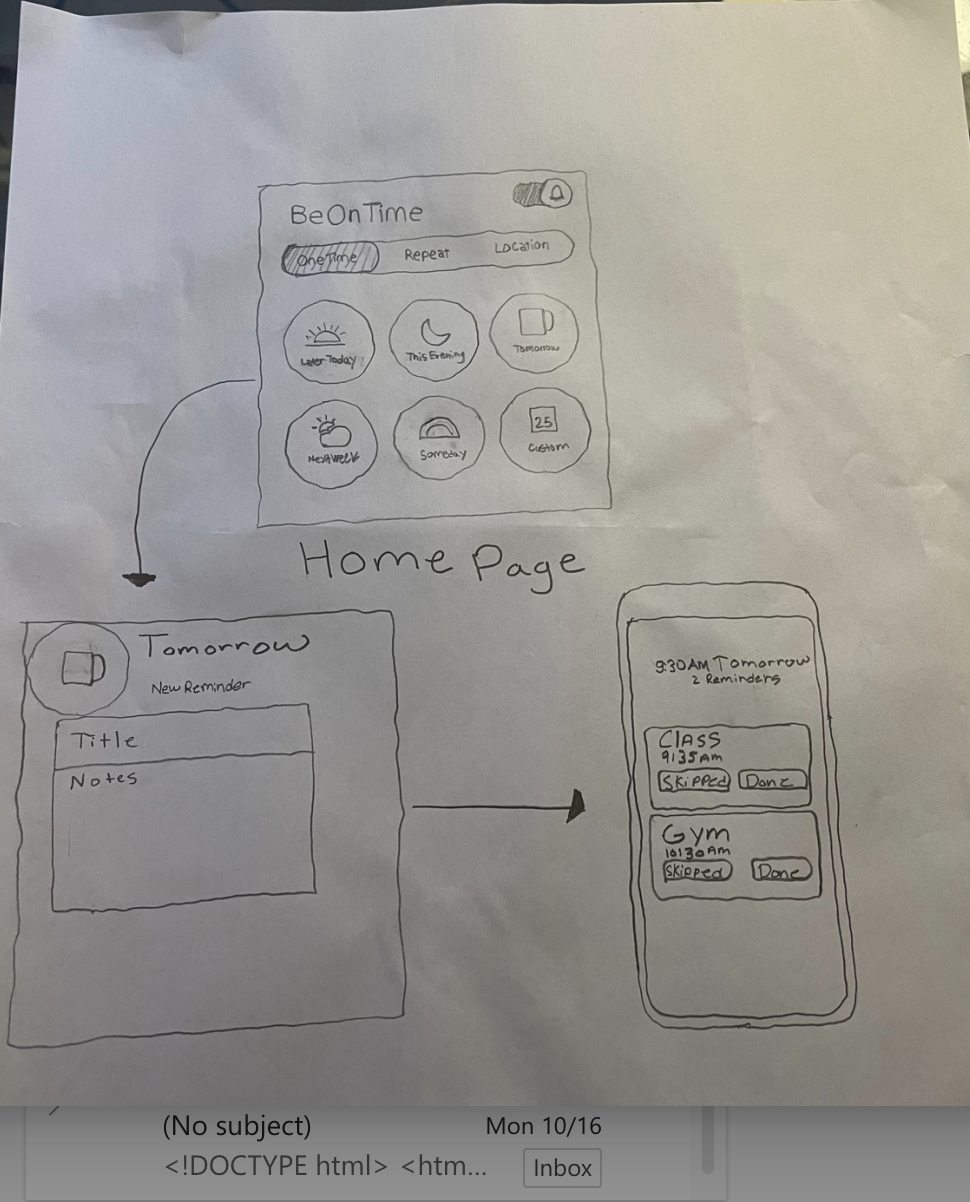 BeOnTime
OneTime Repeat Location
Later Today This Evening Tomorrow
Next Week Someday 25 Custom
Home Page
Tomorrow
New Reminder
Title
Notes
9:30AM Tomorrow
2 Reminders
Class
9:35 AM
Skipped Done
Gym
10:30 AM
Skipped Done
(No subject) Mon 10/16
<!DOCTYPE html> <htm... Inbox